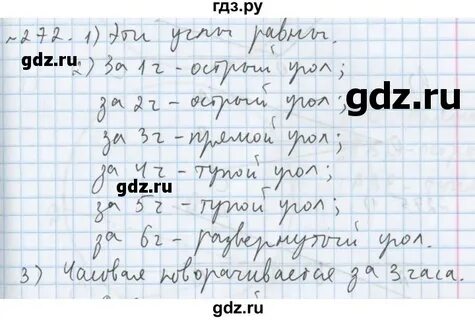 gdz.ру
№272. 1) Эти углы равны.
2) За 1ч - острый угол;
за 2ч - острый угол;
gdz.ру
за 3ч - прямой угол;
за 4ч - тупой угол;
gdz.ру
за 5ч - тупой угол;
gdz.ру
за 6ч - развернутый угол.
3) Часовая поворачивается за 3 часа.
gdz.ру